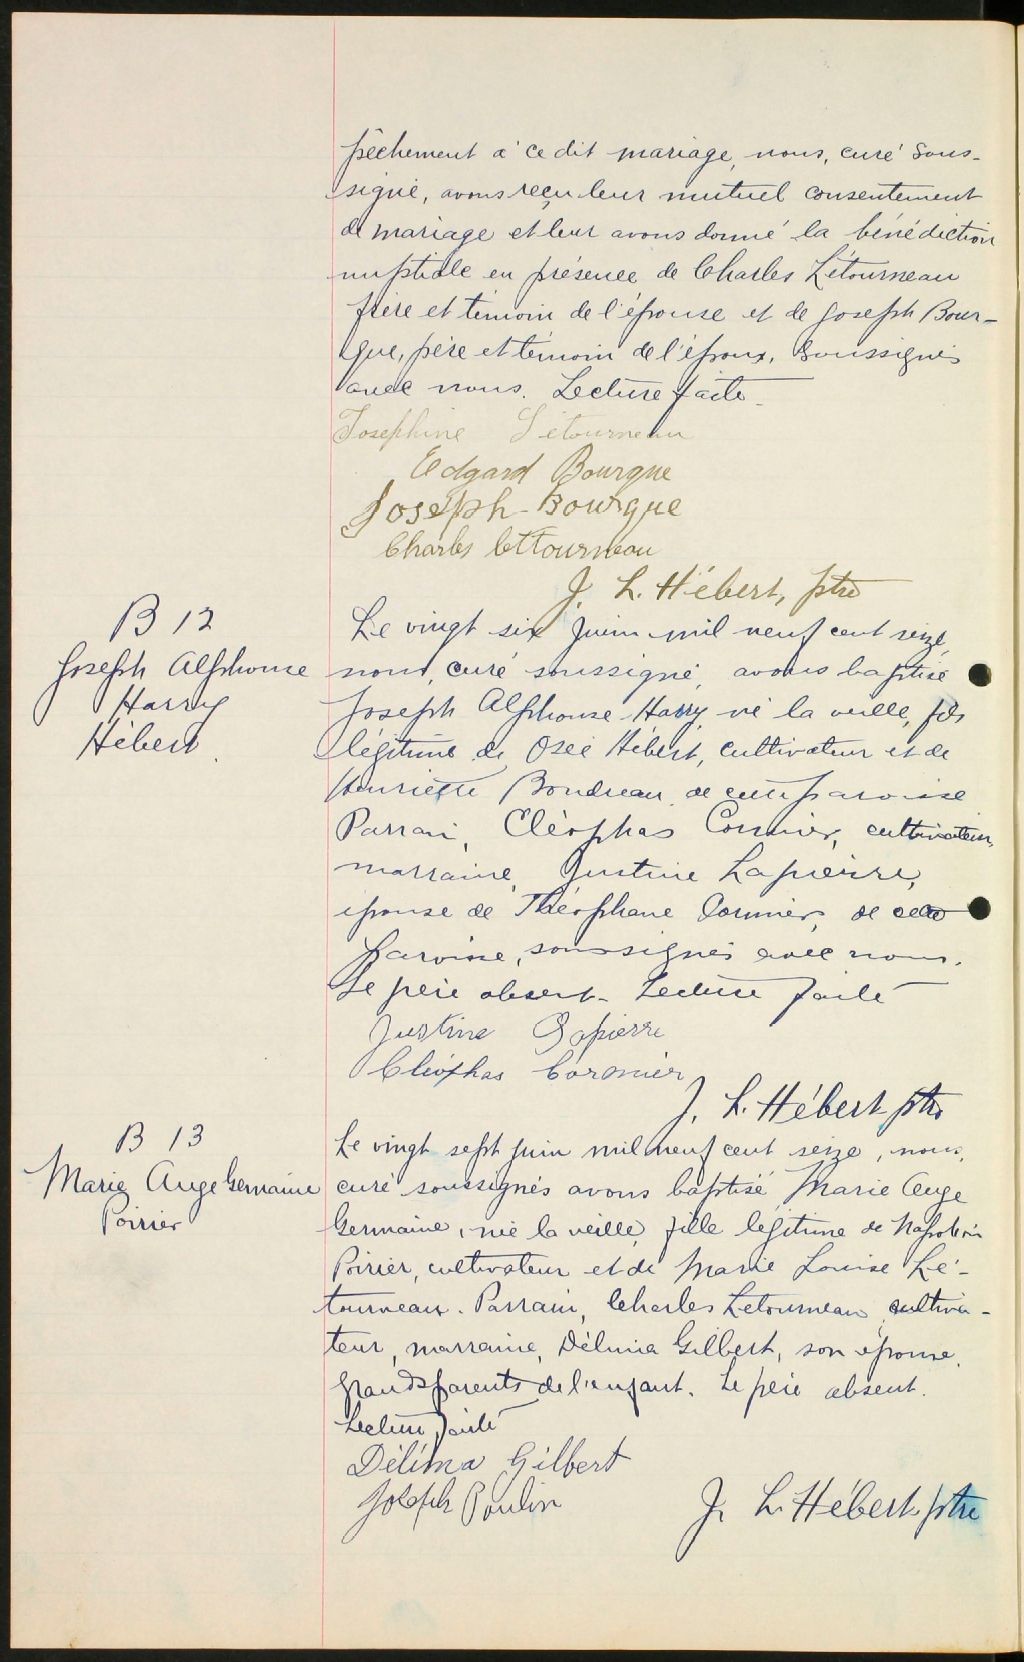 pêchement à ce dit mariage, nous, curé sous-
signé, avons reçu leur mutuel consentement
de mariage et leur avons donné la bénédiction
nuptiale en présence de Charles Létourneau
frère et témoin de l'épouse et de Joseph Bour-
que, père et témoin de l'époux, soussignés
avec nous. Lecture faite.
Josephine Létourneau
Edgard Bourque
Joseph-Bourque
Charles Lettourneau
J. L. Hébert, ptre
B 12
Joseph Alphonse
Harry
Hébert
Le vingt six juin mil neuf cent seize,
nous, curé soussigné, avons baptisé
Joseph Alphonse Harry, né la veille, fils
légitime de Osée Hébert, cultivateur et de
Henriette Boudreau, de cette paroisse
Parrain, Cléophas Cormier, cultivateur,
marraine, Justine Lapierre,
épouse de Théophane Cormier, de cette
paroisse, soussignés avec nous.
Le père absent. Lecture faite
Justine Lapierre
Cléophas Cormier
J. L. Hébert ptre
B 13
Marie Ange Germaine
Poirier
Le vingt sept juin mil neuf cent seize, nous,
curé soussignés avons baptisé Marie Ange
Germaine, née la veille, fille légitime de Napoléon
Poirier, cultivateur et de Marie Louise Lé-
tourneau. Parrain, Charles Letourneau, cultiva-
teur, marraine, Délima Gilbert, son épouse,
grands parents de l'enfant. Le père absent.
Lecture faite
Délima Gilbert
Joseph Poulin
J. L. Hébert ptre